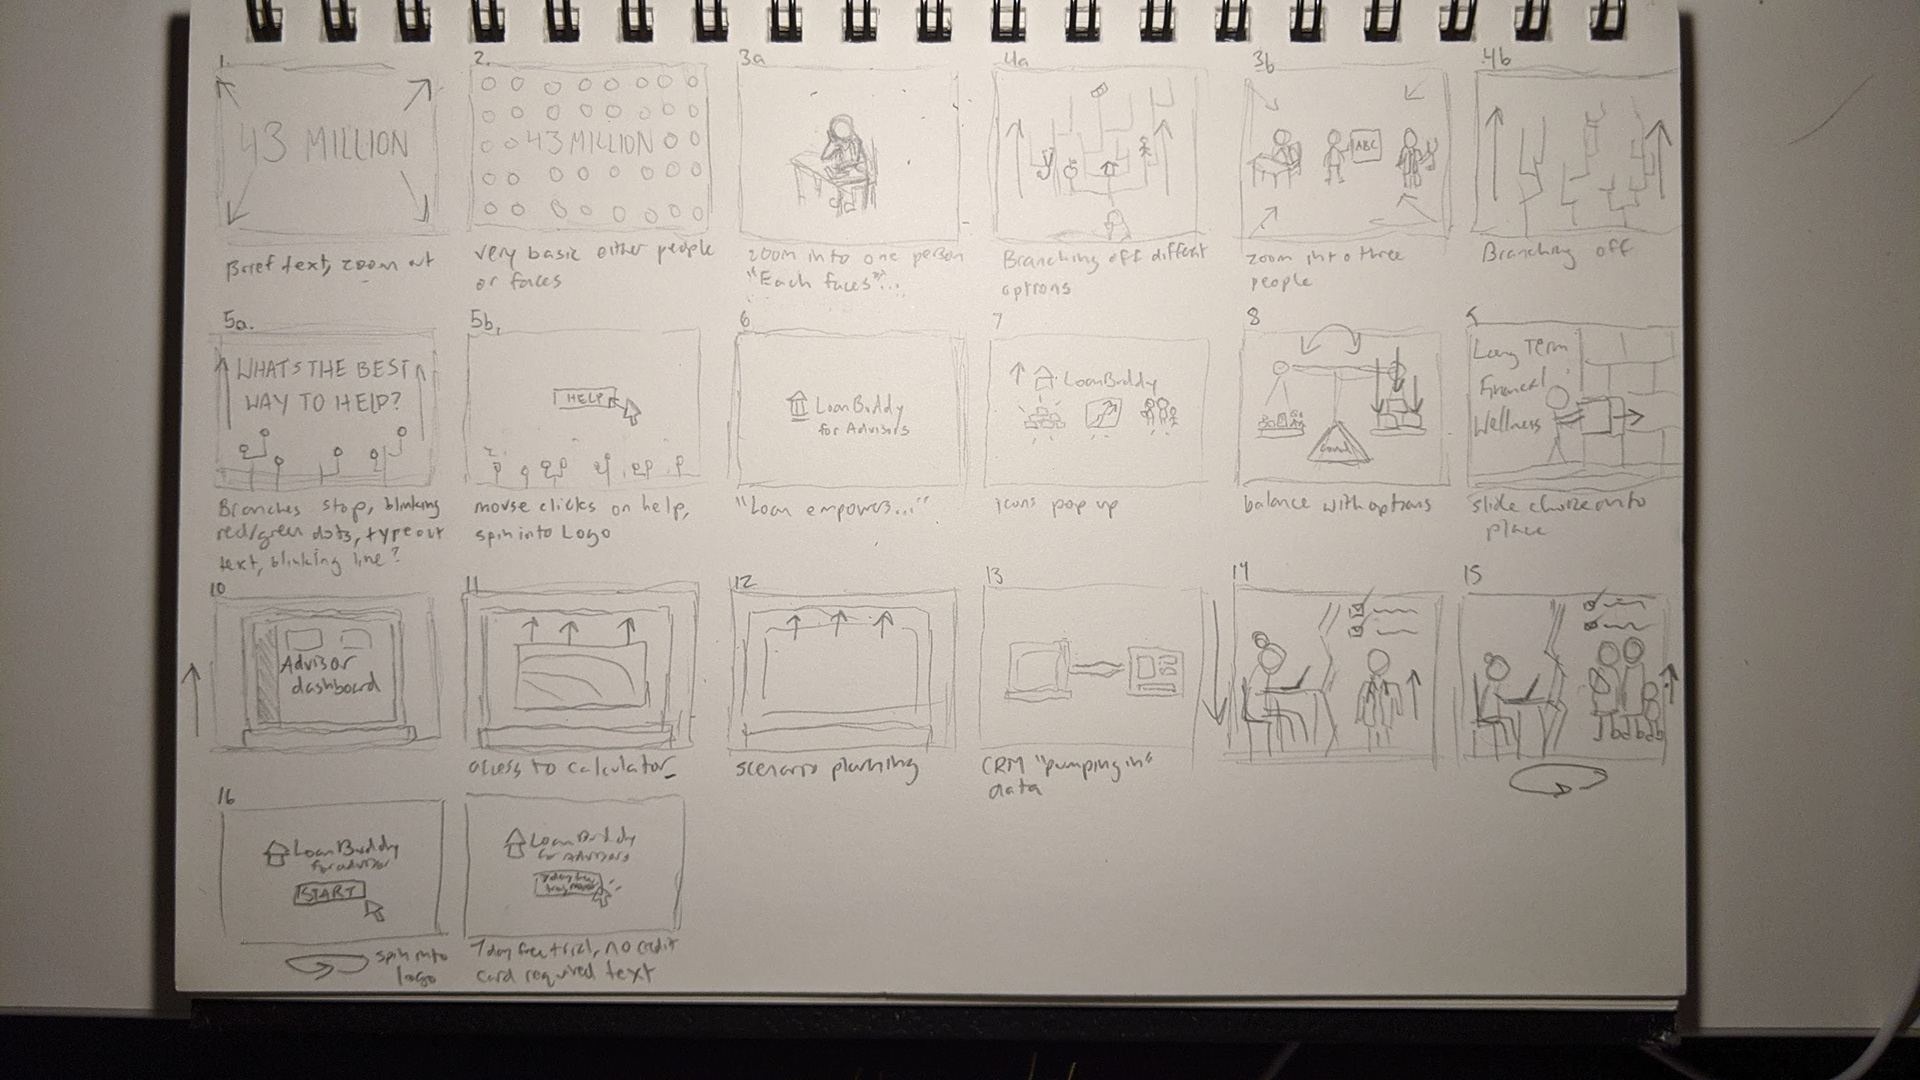 1.
43 MILLION
Breif text, zoom out
2.
43 MILLION
very basic either people
or faces
3a
zoom into one person
"Each faces"...
4a
Branching off different
options
3b
ABC
zoom into three
people
4b
Branching off
5a.
WHATS THE BEST
WAY TO HELP?
Branches stop, blinking
red/green dots, type out
text, blinking line?
5b.
HELP
mouse clicks on help,
spin into Logo
6
LoanBuddy
for Advisors
"Loan empowers..."
7
LoanBuddy
icons pop up
8
balance with options
Long Term
Financial
Wellness
slide choice into
place
10
Advisor
dashboard
11
access to calculator
12
scenario planning
13
CRM "pumping in"
data
14
15
16
LoanBuddy
for advisor
START
spin into
logo
LoanBuddy
for Advisors
7 day free
7 day free trial, no credit
card required text